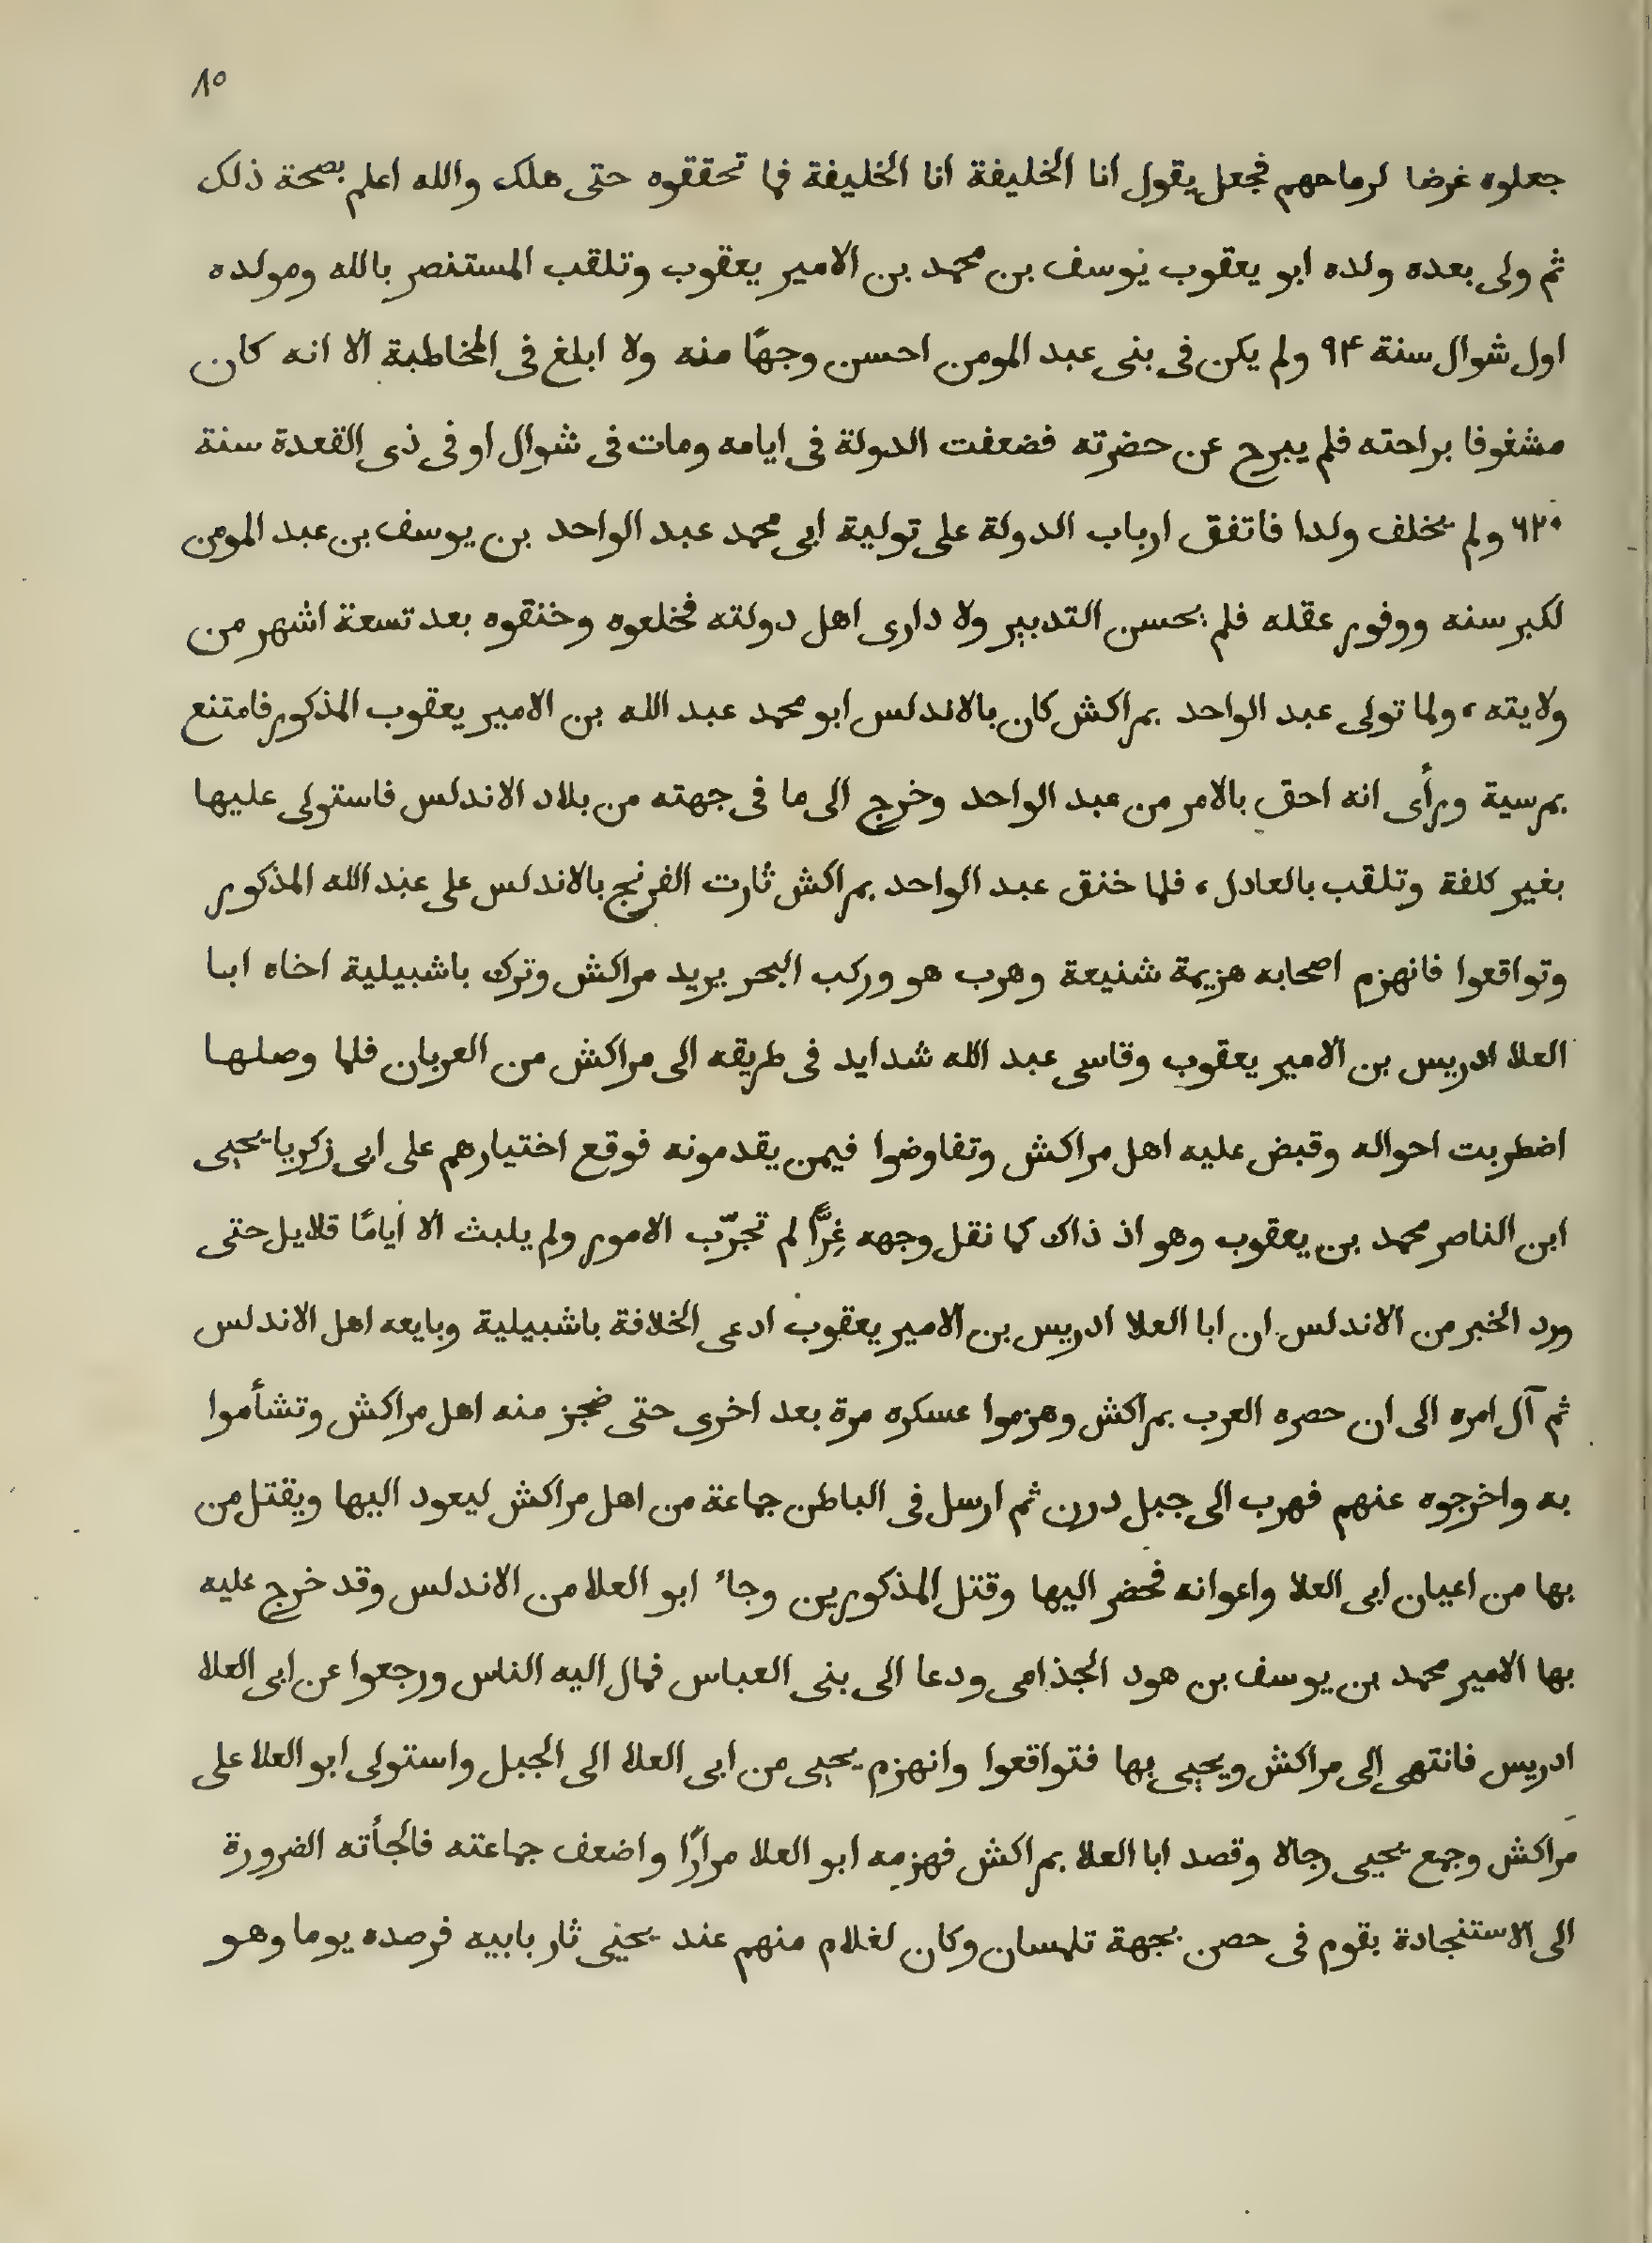 ٨٥
جعلوه غرضا لرماحهم فجعل يقول انا الخليفة انا الخليفة فما تحققوه حتى هلك والله اعلم بصحة ذلك
ثم ولى بعده ولده ابو يعقوب يوسف بن محمد بن الامير يعقوب وتلقب المستنصر بالله ومولده
اول شوال سنة ٩۴ ولم يكن فى بنى عبد المومن احسن وجهًا منه ولا ابلغ فى المخاطبة الا انه كان
مشغوفا براحته فلم يبرح عن حضرته فضعفت الدولة فى ايامه ومات فى شوال او فى ذى القعدة سنة
٦٢٠ ولم يخلف ولدا فاتفق ارباب الدولة على تولية ابى محمد عبد الواحد بن يوسف بن عبد المومن
لكبر سنه ووفور عقله فلم يحسن التدبير ولا دارى اهل دولته فخلعوه وخنقوه بعد تسعة اشهر من
ولايته، ولما تولى عبد الواحد بمراكش كان بالاندلس ابو محمد عبد الله بن الامير يعقوب المذكور فامتنع
بمرسية ورأى انه احق بالامر من عبد الواحد وخرج الى ما فى جهته من بلاد الاندلس فاستولى عليها
بغير كلفة وتلقب بالعادل، فلما خنق عبد الواحد بمراكش ثارت الفرنج بالاندلس على عبد الله المذكور
وتواقعوا فانهزم اصحابه هزيمة شنيعة وهرب هو وركب البحر يريد مراكش وترك باشبيلية اخاه ابا
العلا ادريس بن الامير يعقوب وقاسى عبد الله شدايد فى طريقه الى مراكش من العربان فلما وصلها
اضطربت احواله وقبض عليه اهل مراكش وتفاوضوا فيمن يقدمونه فوقع اختيارهم على ابى زكريا يحيى
ابن الناصر محمد بن يعقوب وهو اذ ذاك كما نقل وجهه غِرًّا لم تجرّب الامور ولم يلبث الا أيامًا قلايل حتى
ورد الخبر من الاندلس ان ابا العلا ادريس بن الامير يعقوب ادعى الخلافة باشبيلية وبايعه اهل الاندلس
ثم آل امره الى ان حصره العرب بمراكش وهزموا عسكره مرة بعد اخرى حتى ضجر منه اهل مراكش وتشأموا
به واخرجوه عنهم فهرب الى جبل درن ثم ارسل فى الباطن جماعة من اهل مراكش ليعود اليها ويقتل من
بها من اعيان ابى العلا واعوانه فحضر اليها وقتل المذكورين وجاء ابو العلا من الاندلس وقد خرج عليه
بها الامير محمد بن يوسف بن هود الجذامى ودعا الى بنى العباس فمال اليه الناس ورجعوا عن ابى العلا
ادريس فانتهى الى مراكش ويحيى بها فتواقعوا وانهزم يحيى من ابى العلا الى الجبل واستولى ابو العلا على
مراكش وجمع يحيى رجالا وقصد ابا العلا بمراكش فهزمه ابو العلا مرارًا واضعف جماعته فالجأته الضرورة
الى الاستنجادة بقوم فى حصن بجهة تلمسان وكان لغلام منهم عند يحيى ثار بابيه فرصده يوما وهو